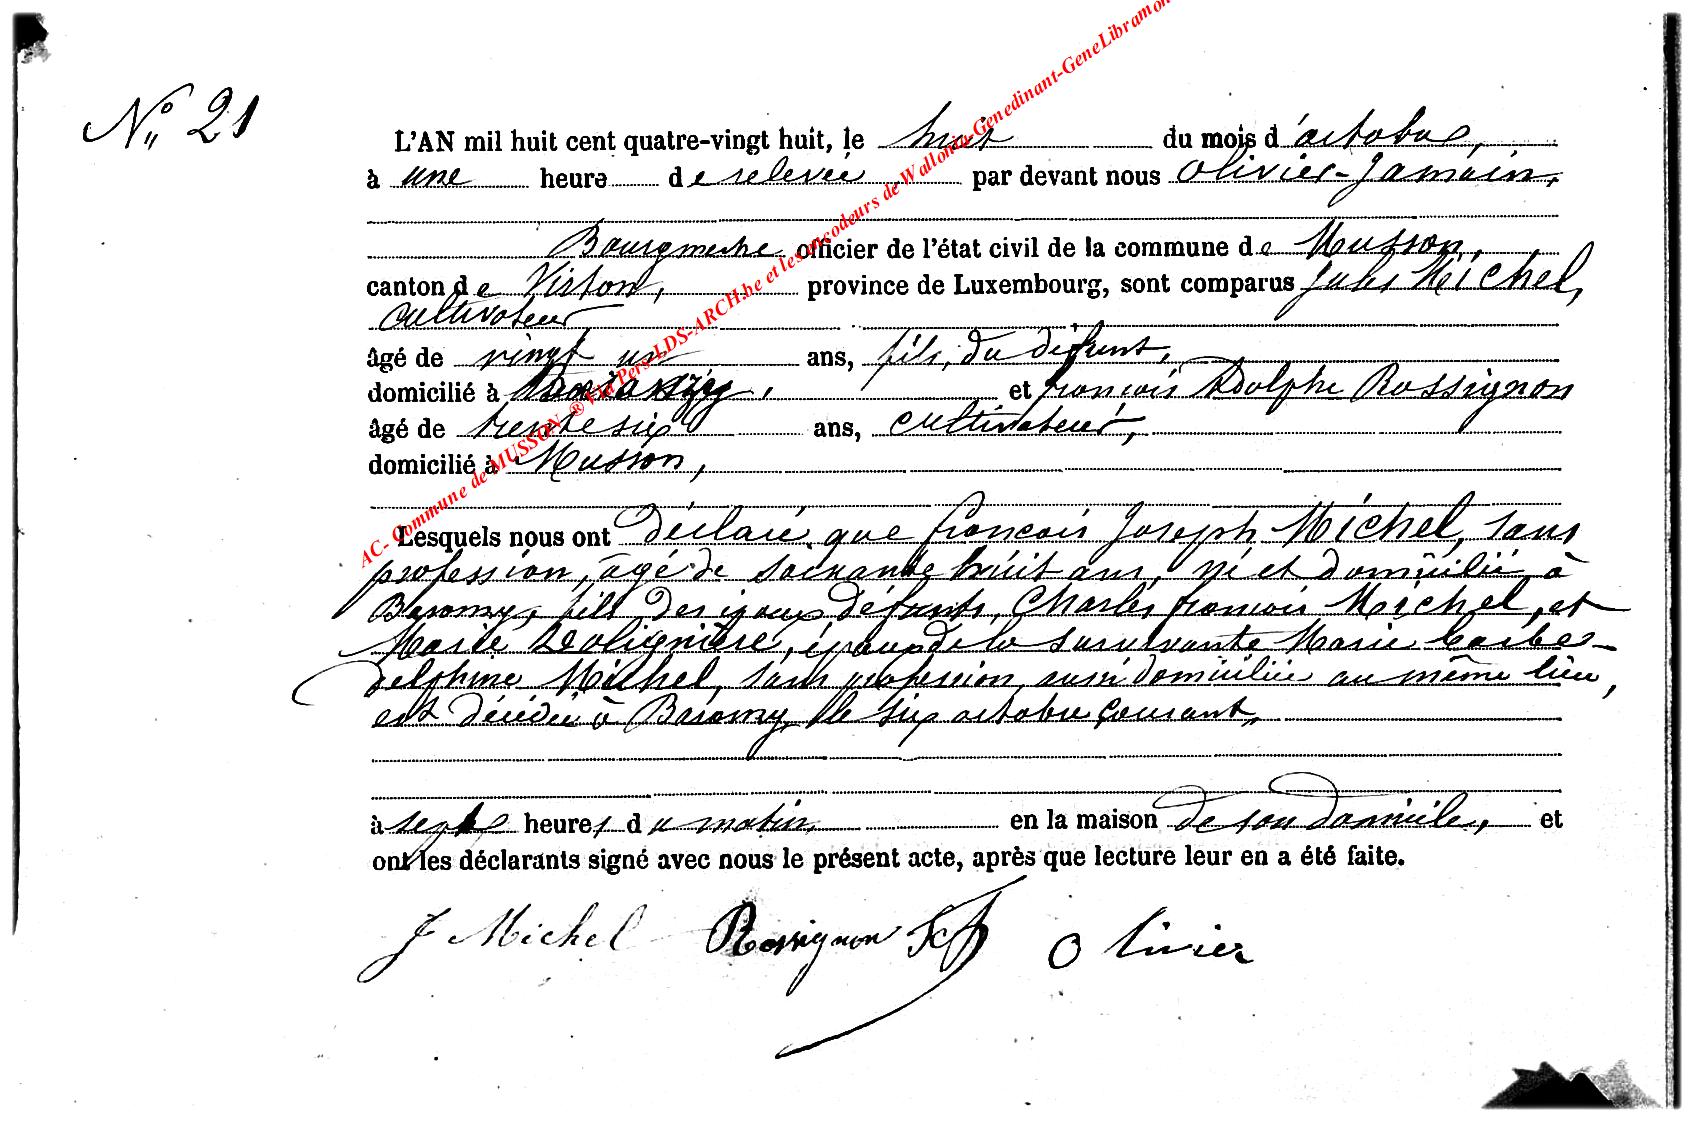 N° 21
L'AN mil huit cent quatre-vingt huit, le huit du mois d'octobre,
à une heure de relevée par devant nous Olivier-Jamain,
Bourgmestre officier de l'état civil de la commune de Musson,
canton de Virton, province de Luxembourg, sont comparus Jules Michel,
cultivateur
âgé de vingt un ans, fils du défunt,
domicilié à Baranzy, et françois Adolphe Rossignon
âgé de trente six ans, cultivateur,
domicilié à Musson,
Lesquels nous ont déclaré que françois Joseph Michel, sans
profession, âgé de soixante huit ans, né et domicilié à
Baranzy, fils des époux défunts, Charles françois Michel, et
Marie, époux de la survivante Marie Barbe-
Delphine Michel, sans profession, aussi domiciliée au même lieu,
est décédé à Baranzy, le six octobre courant,
à sept heures du matin, en la maison de son domicile, et
ont les déclarants signé avec nous le présent acte, après que lecture leur en a été faite.
J Michel Rossignon Olivier
AC- Commune de MUSSON ® Via Pers-LDS-ARCH.be et les encodeurs de Wallonia-Genedinant-GeneLibramon